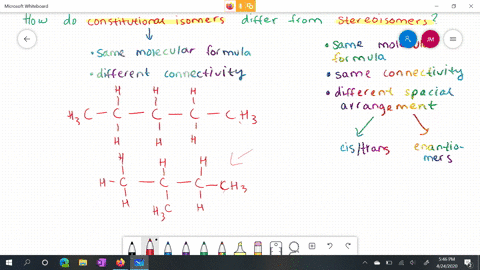 Microsoft Whiteboard
How do constitutional isomers differ from stereoisomers?
JM
• same molecular formula
• different connectivity
H H H
H₃C – C – C – C – CH₃
H H H
H H H
H – C – C – C – CH₃
H H₃C H
• same molecular
formula
• same connectivity
• different special
arrangement
cis/trans
enantio-
mers
5:46 PM
4/24/2020